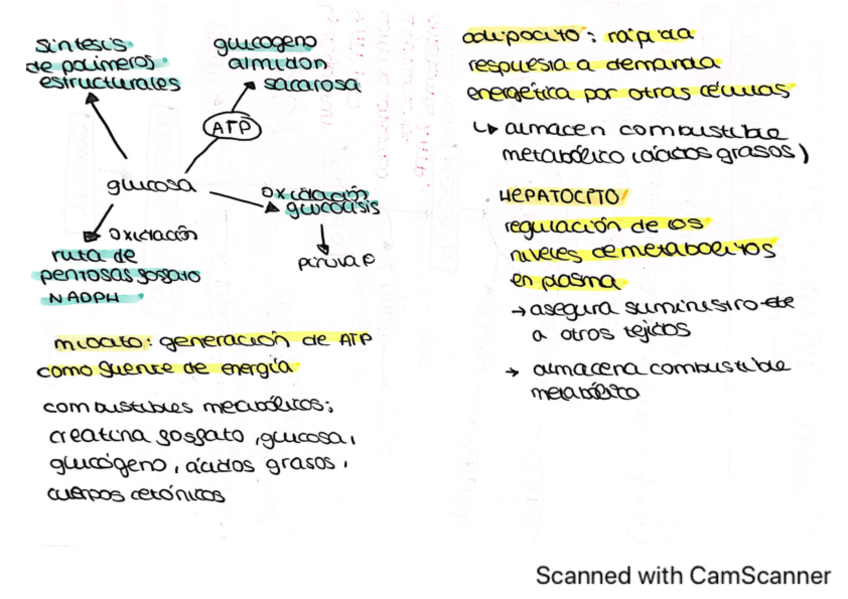 síntesis
de polímeros
estructurales
glucogeno
almidon
sacarosa
ATP
glucosa
oxidación
glucolisis
piruvato
oxidación
ruta de
pentosas fosfato
NADPH
miocito: generación de ATP
como fuente de energía
combustibles metabólicos:
creatina fosfato, glucosa,
glucógeno, ácidos grasos,
cuerpos cetónicos
adipocito: rápida
respuesta a demanda
energética por otras células
↳ almacen combustible
metabólico (ácidos grasos)
HEPATOCITO
regulación de los
niveles de metabolitos
en plasma
→ asegura suministro
a otros tejidos
→ almacena combustible
metabólito
Scanned with CamScanner